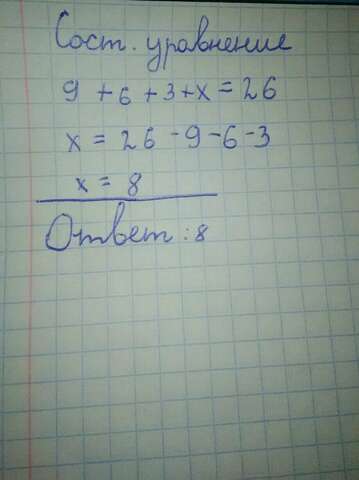 Сост. уравнение
9 + 6 + 3 + x = 26
x = 26 - 9 - 6 - 3
x = 8
Ответ : 8